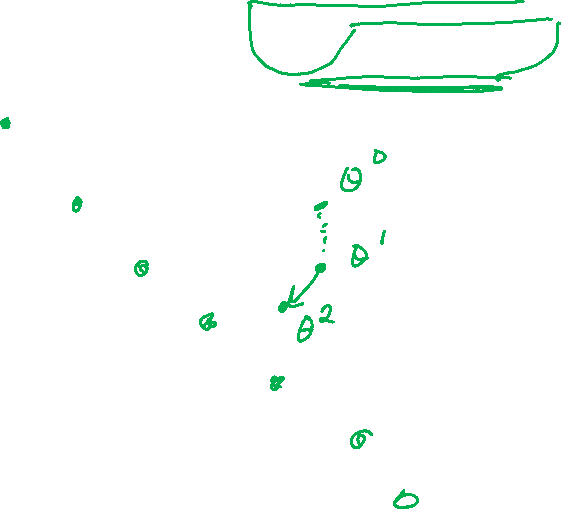 θ⁰
θ¹
θ²